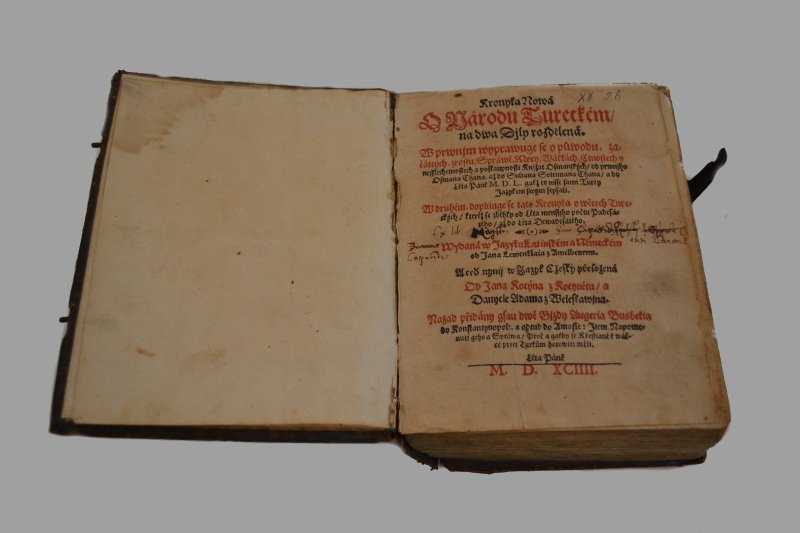 XII 26
Kronyka Nowá
O Národu Tureckém/
na dwa Dijly rozdělená.
W prwnijm wyprawuge se o půwodu, za-
čátcých, zrostu, Spráwě, Žiwoty, Wálkách, Činostech y
Knijžat Ožmanských, od prwnijho
Ožmana Chána, až do Sultana Solimana Chána/ a do
Léta Páně M. D. L. gakž to wsse sami Turcy
Jazykem swým sepsali.
W druhém, doplňuge se tato Kronyka o wěcech Ture-
ckých/ kteréž se zběhly od Léta menssijho počtu Padesá-
tého/ až do Dewadesátého.
Ex lib
Wydaná w Jazyku Latinském a Německém
od Jana Lewenklaia z Amelbeurnu.
A teď nynij w Jazyk Cžeský přeložená
Od Jana Kocýna z Kocynětu/ a
Danyele Adama z Weleslawijna.
Nazad přidány gsau dwě Gijzdy Augeria Busbekia
do Konstantynopole, a odtud do Amasie: Item Napome-
nutij geho a Spráwa/ Proč a gakby se Křesťané k wál-
ce proti Turkům hotowiti měli.
Léta Páně
M. D. XCIIII.